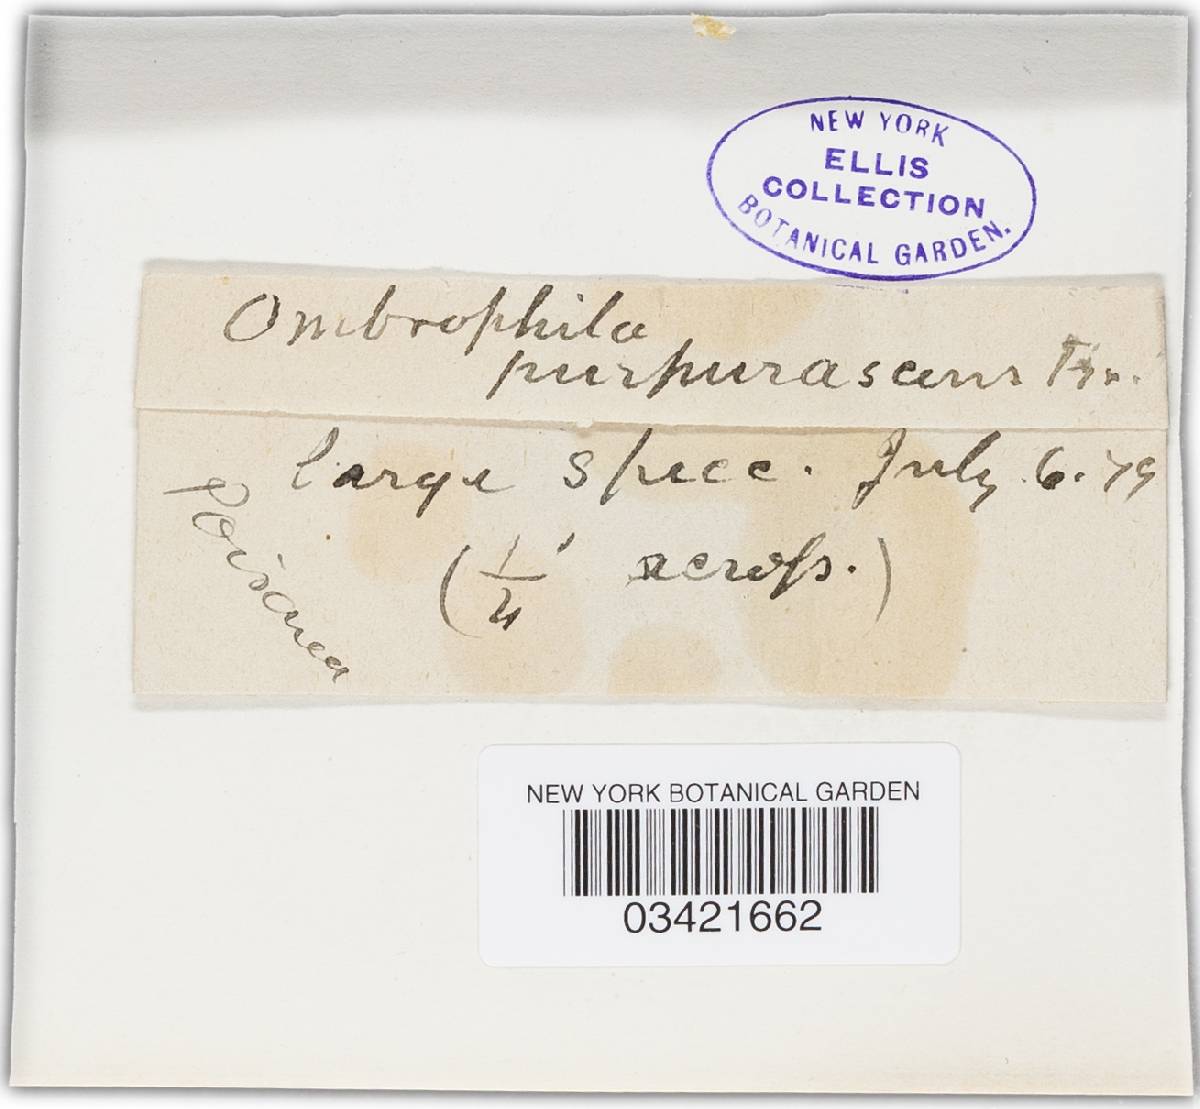 NEW YORK
ELLIS
COLLECTION
BOTANICAL GARDEN.
Ombrophila
purpurascens
large specc. July 6. 79
(1/4' across.)
NEW YORK BOTANICAL GARDEN
03421662